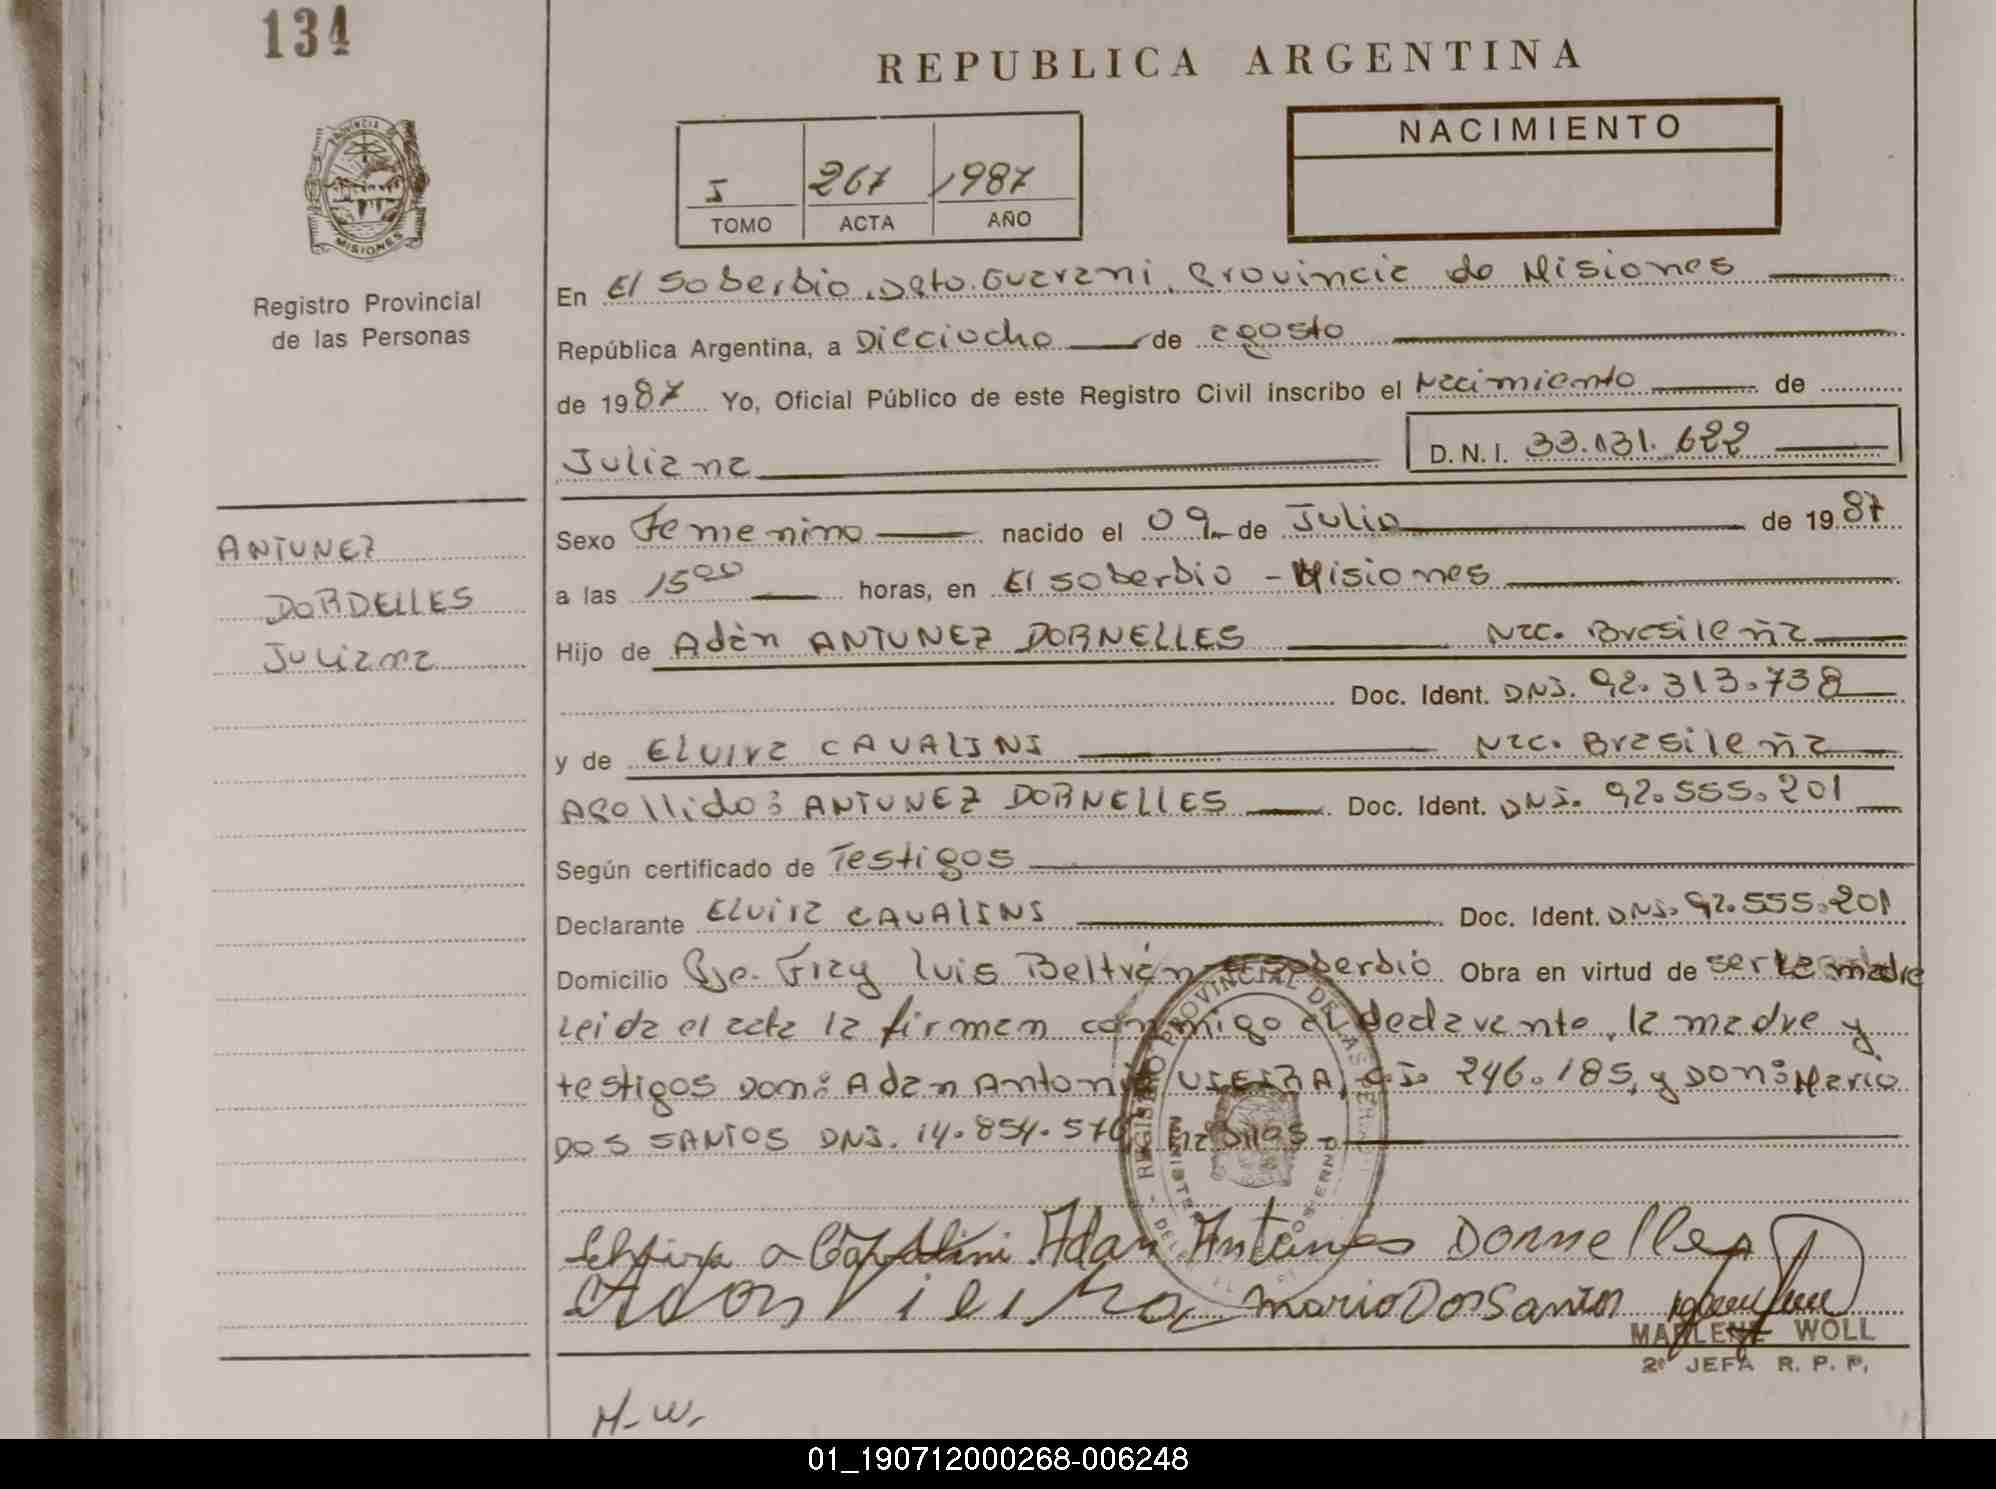 134
REPUBLICA ARGENTINA
PROVINCIA DE
MISIONES
Registro Provincial
de las Personas
I 267 1987
TOMO ACTA AÑO
NACIMIENTO
En El Soberbio, Dpto. Guarani, Provincia de Misiones
República Argentina, a Dieciocho de agosto
de 1987 Yo, Oficial Público de este Registro Civil inscribo el Nacimiento de
Juliana
D.N.I. 33.131.622
ANTUNEZ
DORDELLES
Juliana
Sexo Femenino nacido el 09 de Julio de 1987
a las 15 00 horas, en El Soberbio - Misiones
Hijo de Adán ANTUNEZ DORNELLES Nac. Brasileña
Doc. Ident. DNI. 92.313.738
y de Elvira CAVALINI Nac. Brasileña
Apellido: ANTUNEZ DORNELLES Doc. Ident. DNI. 92.555.201
Según certificado de Testigos
Declarante Elvira CAVALINI Doc. Ident. DNI. 92.555.201
Domicilio Pje. Fray Luis Beltrán Soberbio Obra en virtud de ser la madre
Leida el acta la firman conmigo el declarante, la madre y
testigos Don: Adan Antonio VIEIRA, C.I. 246.185, y Don: Mario
DOS SANTOS DNI. 14.854.570
REGISTRO PROVINCIAL DE LAS
Adan Antunes Dornelles
Adon Vieira Mario Dos Santos
MARLENE WOLL
2º JEFA R. P. P.
M-W-
01_190712000268-006248